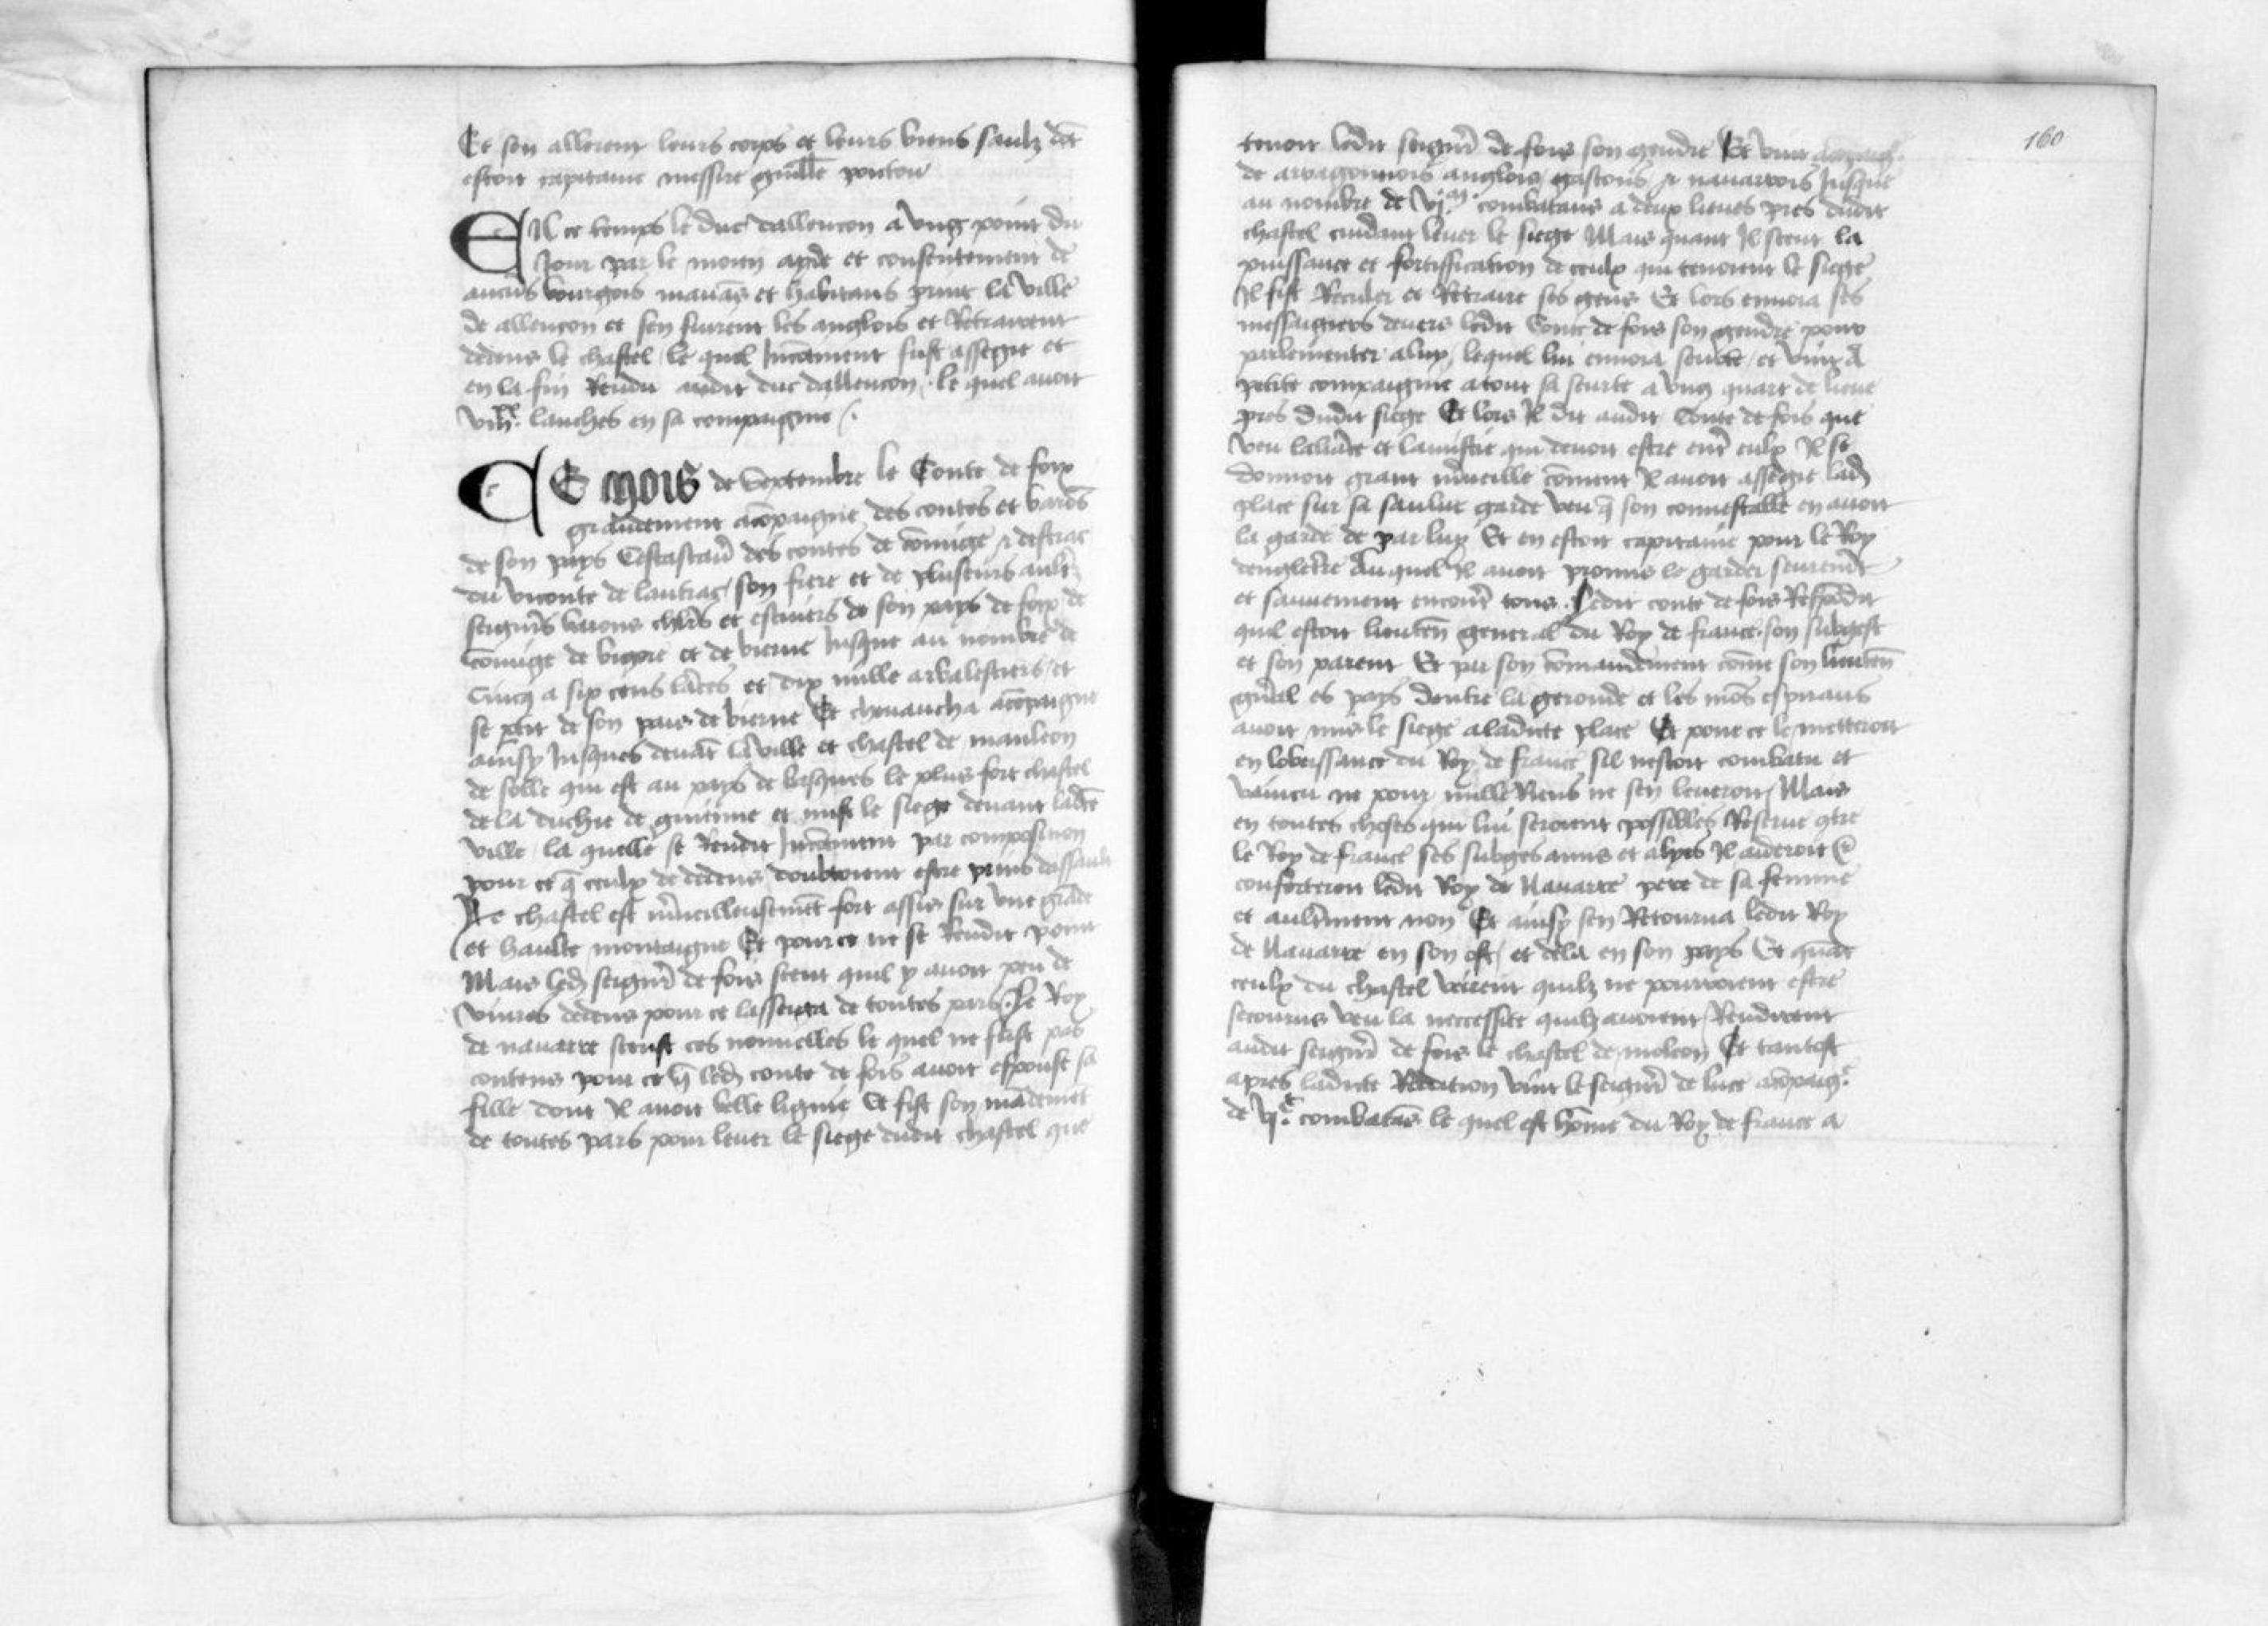 Et sen allerent leurs corps et leurs biens saulz dōt
estoit capitaine messire guille poitou
EN ce temps le duc dallencon a ung point du
Jour par le moien ayde et consentement de
aucūs bourgois manās et habitans print la ville
de allencon et sen fuirent les anglois et Retrairent
dedens le chastel le quel Incōtinent fust assegie et
en la fin Rendu audit duc dallencon. le quel avoit
lanches en sa compaignie
CE mois de Septembre le Conte de foix
grandement acōpaigne des contes et barōs
de son pays Cestascaū des contes de cōminge et destrac
du viconte de lautrac son frere et de pluseurs aultˢ
seignrs barons chlrs et escuiers de son pays de foix de
Cōminge de bigore et de bierne Jusque au nombre de
Cincq a six cens lāces et dix mille arbalestriers et
se ptit de son pais de bierne Et chevaucha acōpaigne
ainsy Jusques devāt la ville et chastel de mauleon
de solle qui est au pays de basques le plus fort chastel
de la duchie de guienne et mist le siege devant ladte
ville la quelle se Rendit Incōtinent par composicion
pour ce q̄ ceulx de dedens doubtoient estre prins dassault
Le chastel est mveilleusemēt fort assis sur une grāde
et haulte montaigne Et pour ce ne se Rendit point
Mais led seignr de fois sceut quil y avoit peu de
vivres dedens pour ce lassiega de toutes pars. Le Roy
de navarre sceust ces nouvelles le quel ne fust pas
contens pour ce q̄ led conte de fois avoit espouse sa
fille dont Il avoit belle lignie Et fist son mādemēt
de toutes pars pour lever le siege dudit chastel que
160
tenoit ledit seignr de fois son gendre Et vint acōpaig.
de arragonnois anglois gascons et navarrois Jusque
au nombre de vj.m combatans a deux lieues pres dudit
chastel cuidant lever le siege Mais quant Il sceut la
puissance et fortifficacion de ceulx qui tenoient le siege
Il fist Reculer et Retraire ses gens Et lors envoia ses
messaigiers devers ledit Conte de fois son gendre pour
parlementer a luy lequel lui envoia seurte et vint A
petite compaignie a tout sa seurte a ung quart de lieue
pres dudit siege Et lors Il dit audit Conte de fois que
veu laliāce et lamistie qui devoit estre entr eulx Il se
donnoit grant mveille cōment Il avoit assegie lad
place sur sa saulve garde veu q̄ son connestable en avoit
la garde de par luy Et en estoit capitaine pour le Roy
dengletre Auquel Il avoit promis le garder seuremēt
et sauvement encontr tous. Ledit conte de fois Respōdit
quil estoit lieutēn general du Roy de france. son subgest
et son parent Et par son cōmandement cōme son lieutēn
gnral es pays dentre la geronde et les mōs espirans
avoit mis le siege a ladicte place Et pour ce le metteroit
en lobeissance du Roy de france sil nestoit combatu et
vaincu ne pour nulle Riens ne sen leveroit Mais
en toutes choses qui lui seroient possibles Reserve cōtre
le Roy de france ses subges amis et alyes Il aideroit et
conforteroit ledit Roy de Navarre pere de sa femme
et aultrment non Et ainsy sen Retourna ledit Roy
de Navarre en son ost et dela en son pays Et quāt
ceulx du chastel veirent quilz ne pourroient estre
secourus veu la neccessite quilz avoient Rendirent
audit seignr de fois le chastel de moleon Et tantost
apres ladicte Reddition vint le seignr de luce acōpaig.
de vj.c combatās le quel est hōme du Roy de france a